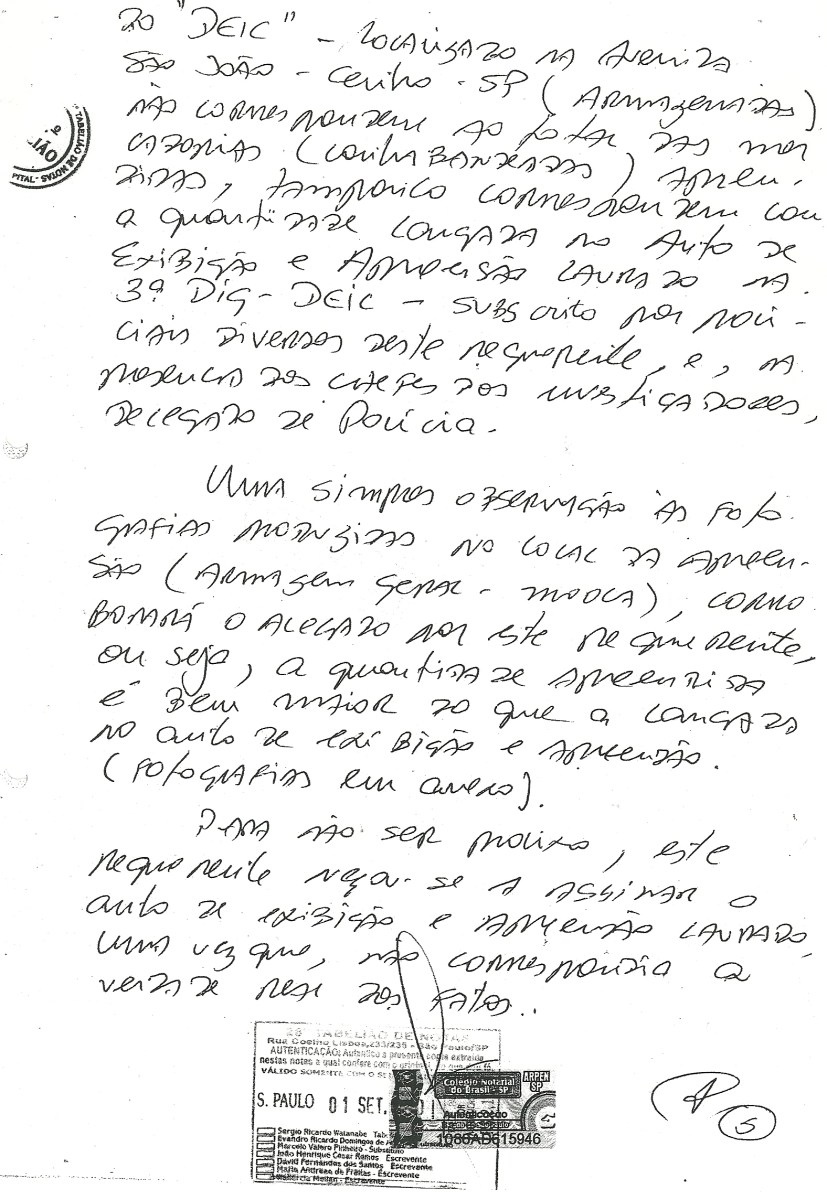 do "DEIC" - localizado na Avenida
São João - Centro - SP (Armazenadas)
não correspondem ao total das mer
cadorias (contrabandeadas) apreen-
didas, tampouco correspondem com
a quantidade lançada no Auto de
Exibição e Apreensão lavrado na
3ª Dig - DEIC - subscrito por poli-
ciais diversos deste requerente, e, na
presença dos chefes dos investigadores,
delegado de Polícia.
Uma simples observação às foto
grafias produzidas no local da apreen-
são (Armazem Geral - Mooca), corro
borará o alegado por este requerente,
ou seja, a quantidade apreendida
é bem maior do que a lançada
no auto de exibição e apreensão.
(fotografias em anexo).
Para não ser prolixo, este
requerente negou-se a assinar o
auto de exibição e apreensão lavrado,
uma vez que, não correspondia a
verdade real dos fatos..
TABELIÃO DE NOTAS
PITAL-
TABELIÃO DE NOTAS
Rua Coelho Lisboa, 233/235 - São Paulo/SP
AUTENTICAÇÃO: Autentico a presente cópia extraída
nestas notas a qual confere com o original
VÁLIDO SOMENTE COM O SE
S. PAULO 01 SET.
Colégio Notarial
do Brasil - SP
ARPEN
SP
Autenticação
1086AD615946
Sergio Ricardo Watanabe
Evandro Ricardo Domingos de
Marcelo Valero Pinheiro - Substituto
João Henrique Cesar Ramos Escrevente
David Fernandes dos Santos Escrevente
Maria Andreza de Freitas - Escrevente
Escrevente
5